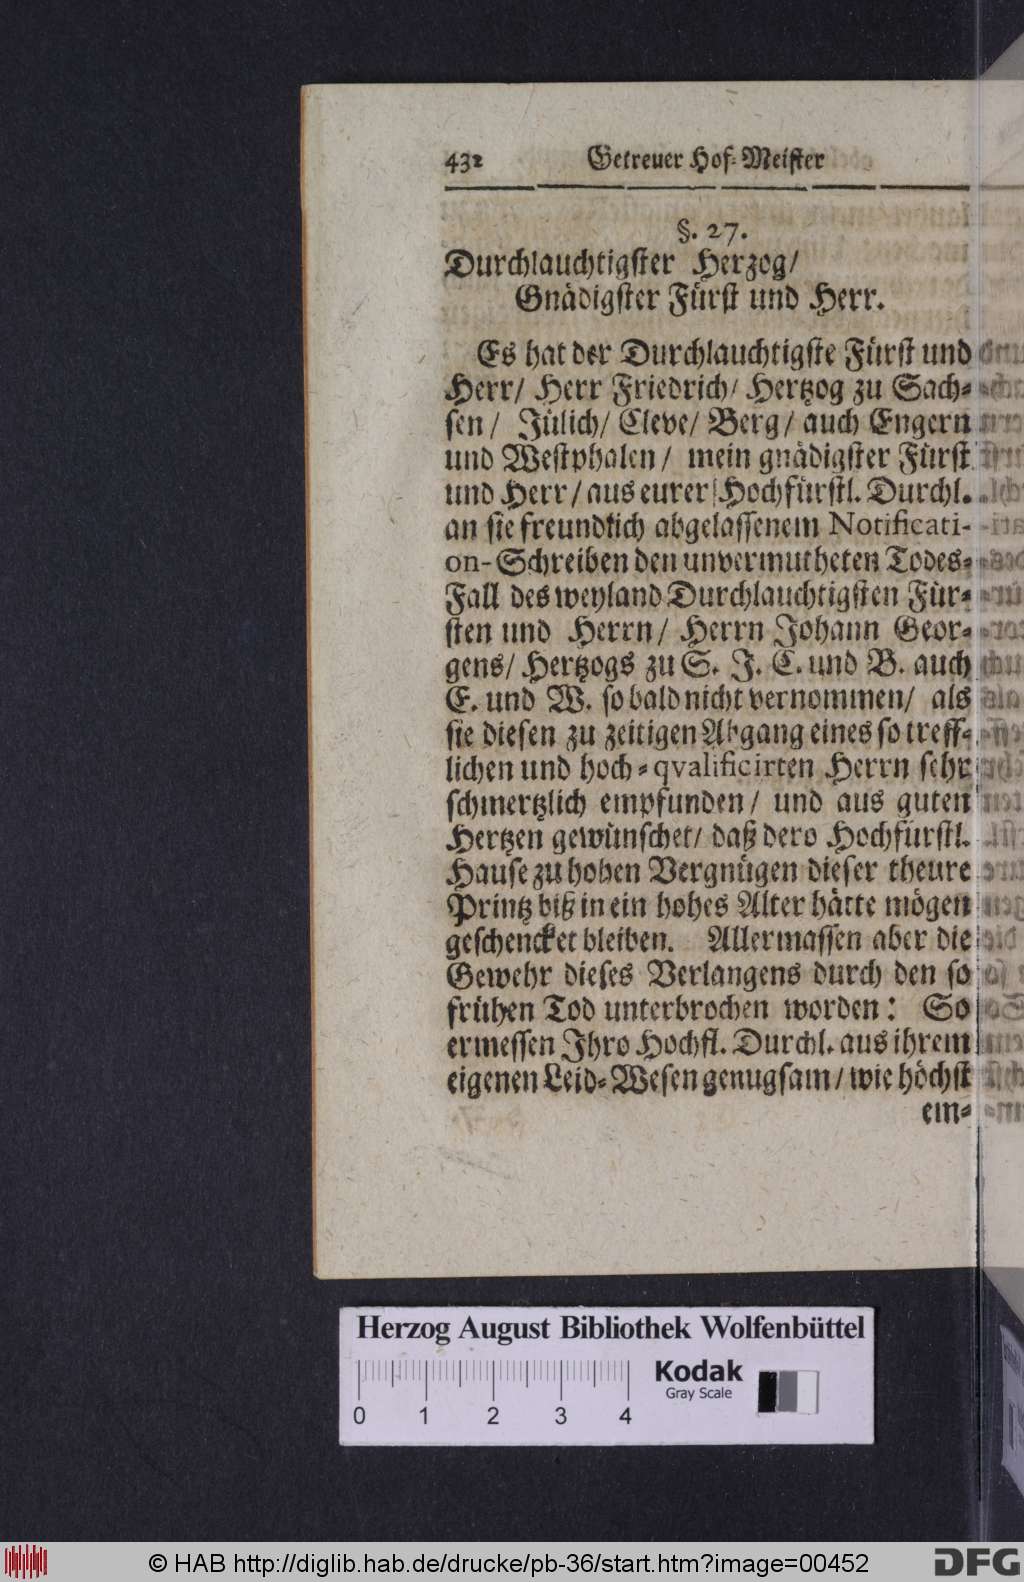 432 Getreuer Hof-Meister
§. 27.
Durchlauchtigster Herzog/
Gnädigster Fürst und Herr.
Es hat der Durchlauchtigste Fürst und
Herr/ Herr Friedrich/ Hertzog zu Sach-
sen/ Jülich/ Cleve/ Berg/ auch Engern
und Westphalen/ mein gnädigster Fürst
und Herr/ aus eurer Hochfürstl. Durchl.
an sie freundlich abgelassenem Notificati-
on-Schreiben den unvermutheten Todes-
Fall des weyland Durchlauchtigsten Für-
sten und Herrn/ Herrn Johann Geor-
gens/ Hertzogs zu S. J. C. und B. auch
E. und W. so bald nicht vernommen/ als
sie diesen zu zeitigen Abgang eines so treff-
lichen und hoch-qvalificirten Herrn sehr
schmertzlich empfunden/ und aus guten
Hertzen gewünschet/ daß dero Hochfürstl.
Hause zu hohen Vergnügen dieser theure
Printz biß in ein hohes Alter hätte mögen
geschencket bleiben. Allermassen aber die
Gewehr dieses Verlangens durch den so
frühen Tod unterbrochen worden: So
ermessen Ihro Hochfl. Durchl. aus ihrem
eigenen Leid-Wesen genugsam/ wie höchst
em-
Herzog August Bibliothek Wolfenbüttel
Kodak
Gray Scale
0 1 2 3 4
© HAB http://diglib.hab.de/drucke/pb-36/start.htm?image=00452
DFG